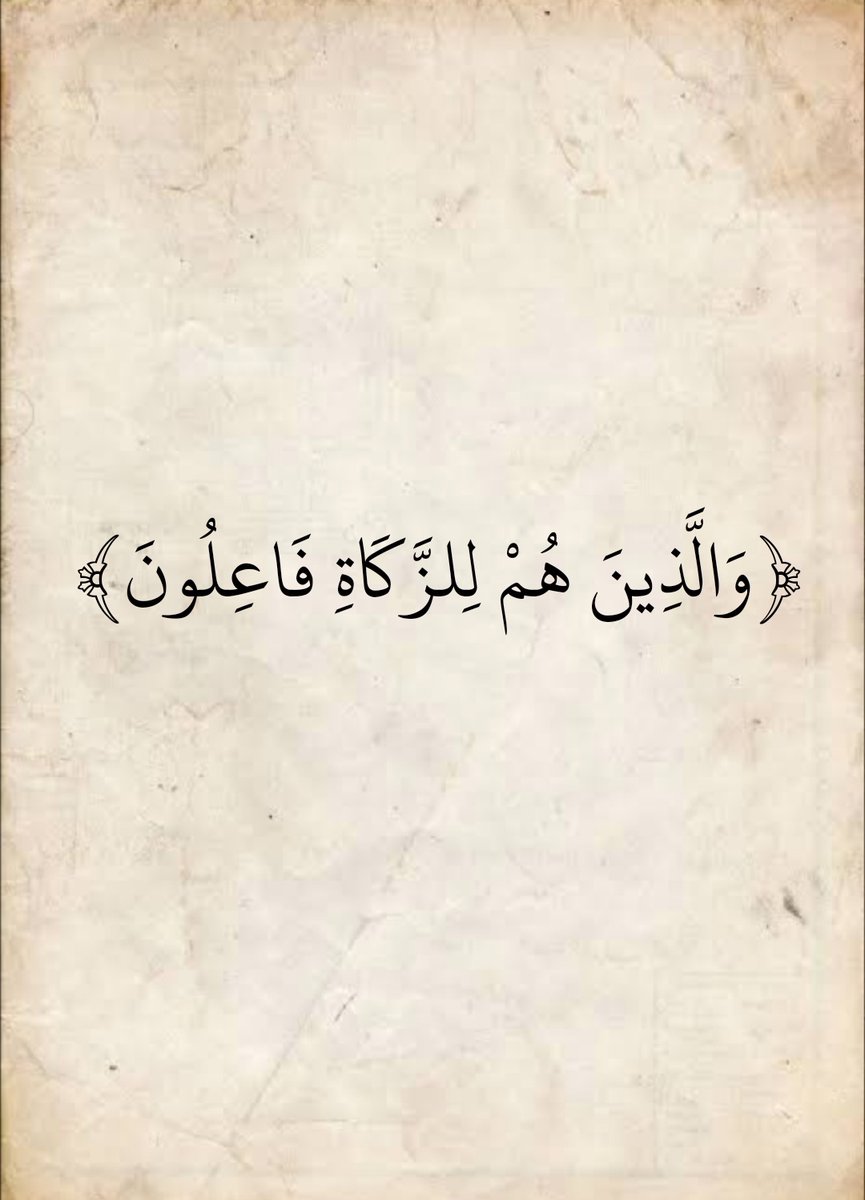 ﴿وَالَّذِينَ هُمْ لِلزَّكَاةِ فَاعِلُونَ﴾